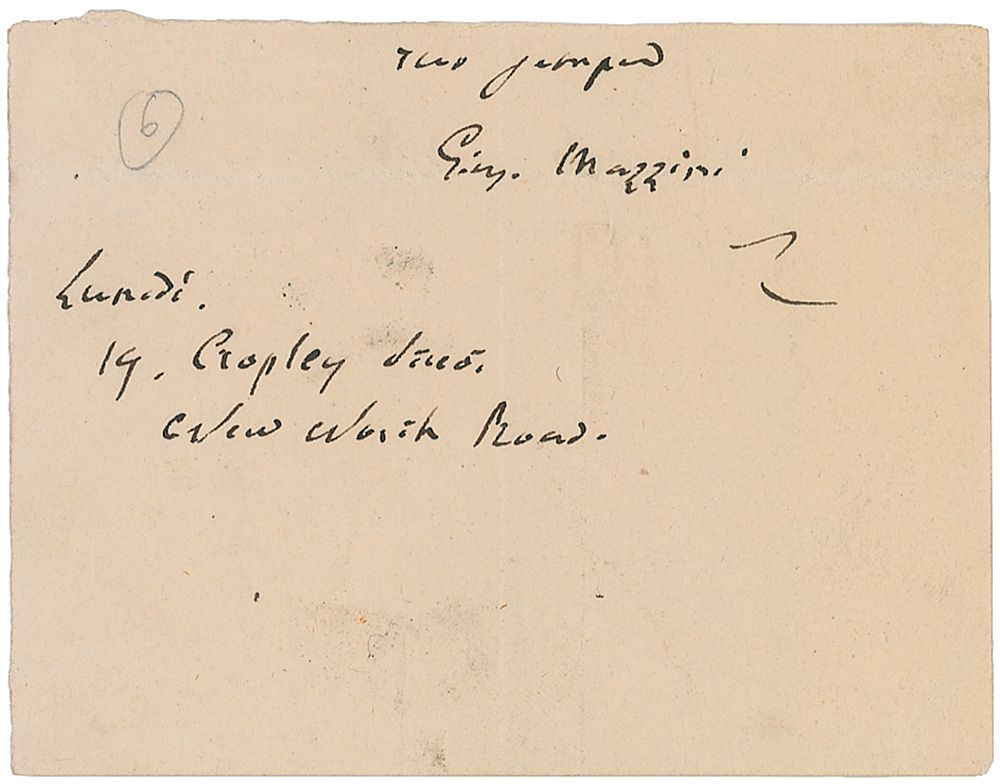 tuo sempre
6
Gius. Mazzini
Lunedi.
19, Cropley Street.
New North Road.